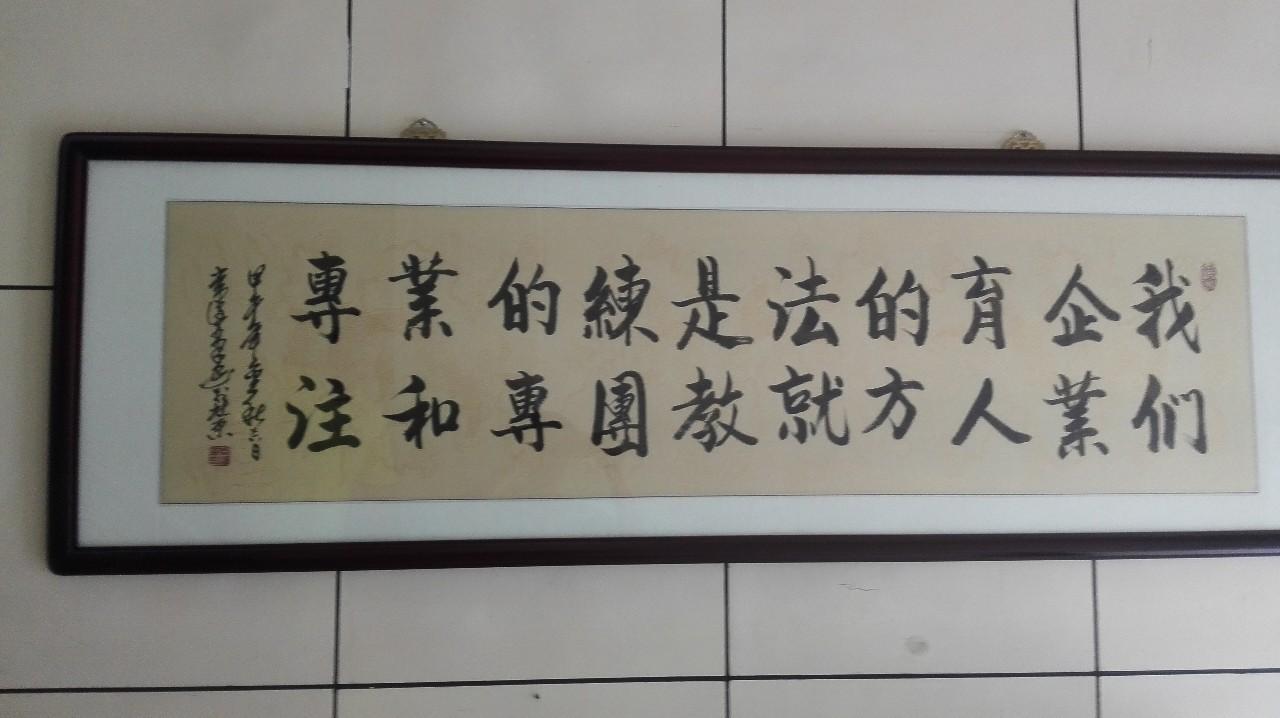 我们
企業
育人
的方
法就
是教
練團
的專
業和
專注
甲午年